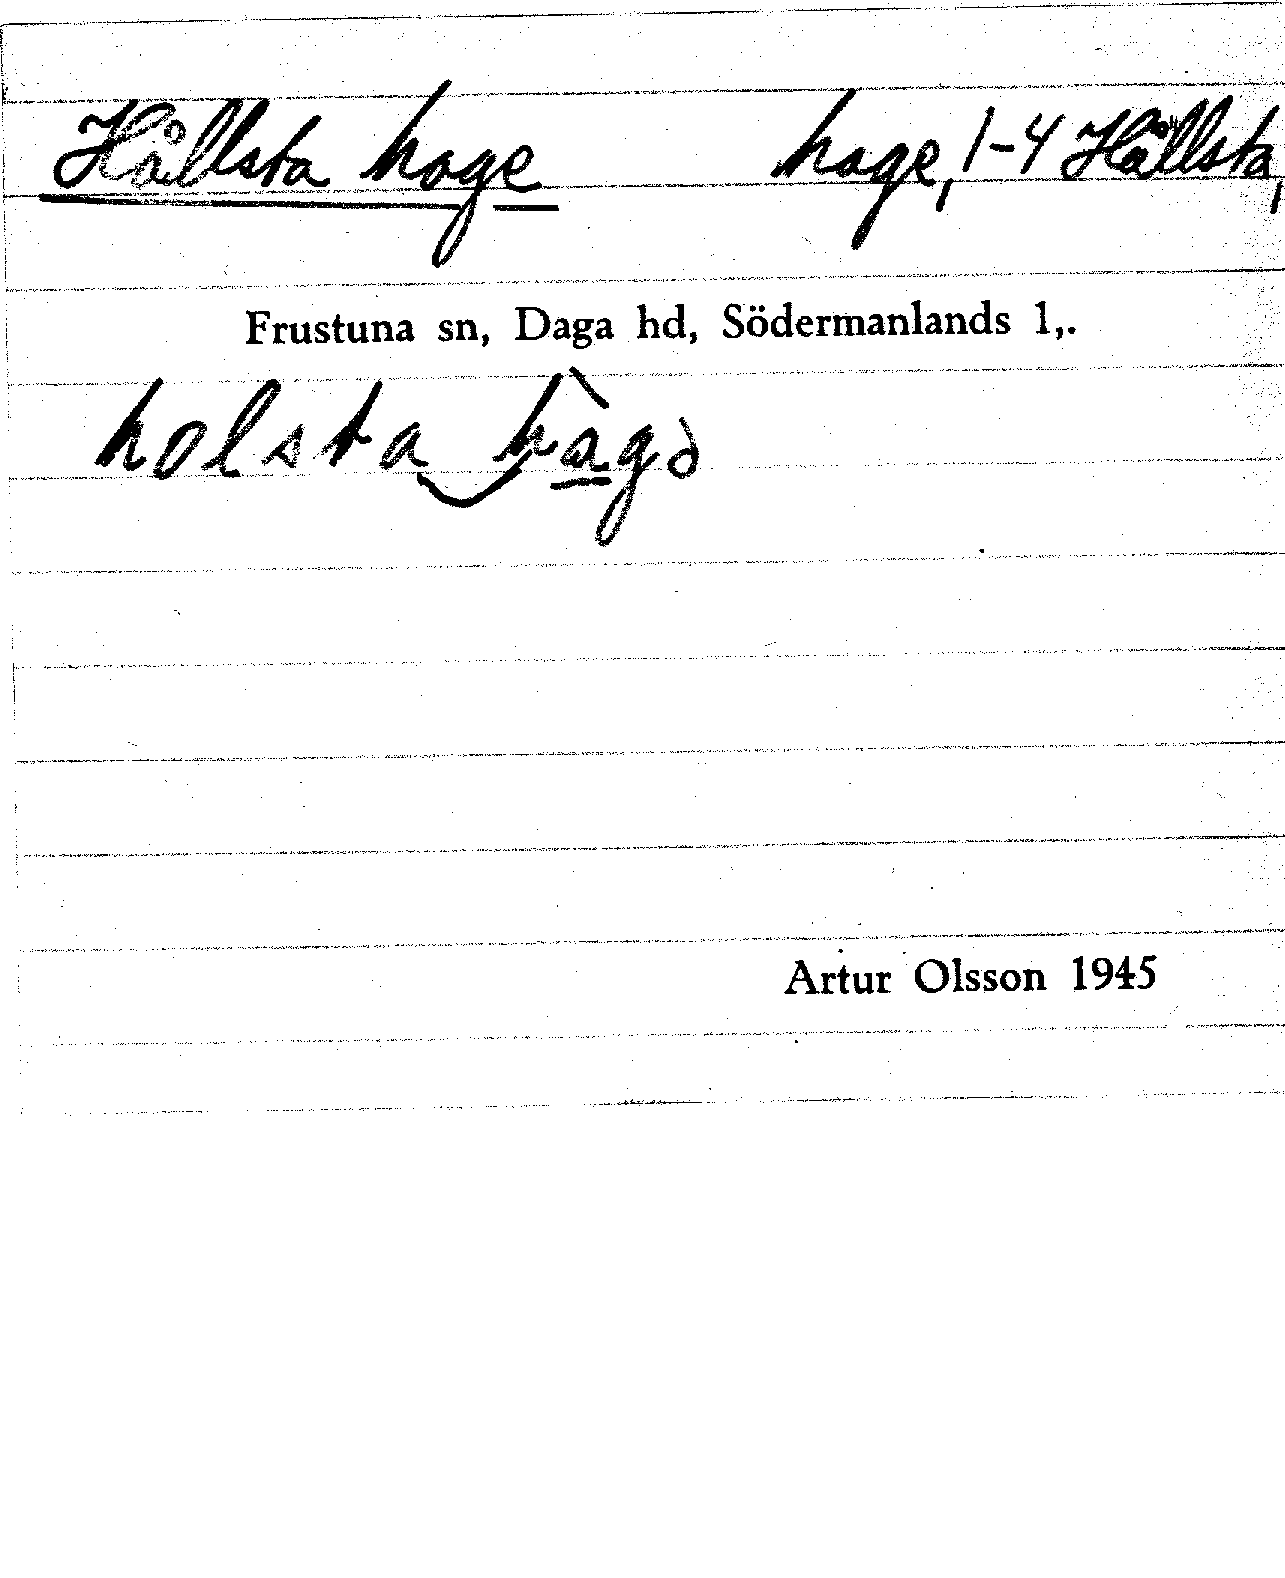 Hållsta hage hage, 1-4 Hållsta,
Frustuna sn, Daga hd, Södermanlands l,.
holsta hàgə
Artur Olsson 1945